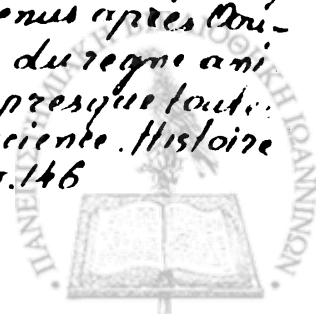 enus après Cou-
du regne ani
presque toute
ciente. Histoire
146
ΠΑΝΕΠΙΣΤΗΜΙΑΚΗ ΒΙΒΛΙΟΘΗΚΗ ΙΩΑΝΝΙΝΩΝ